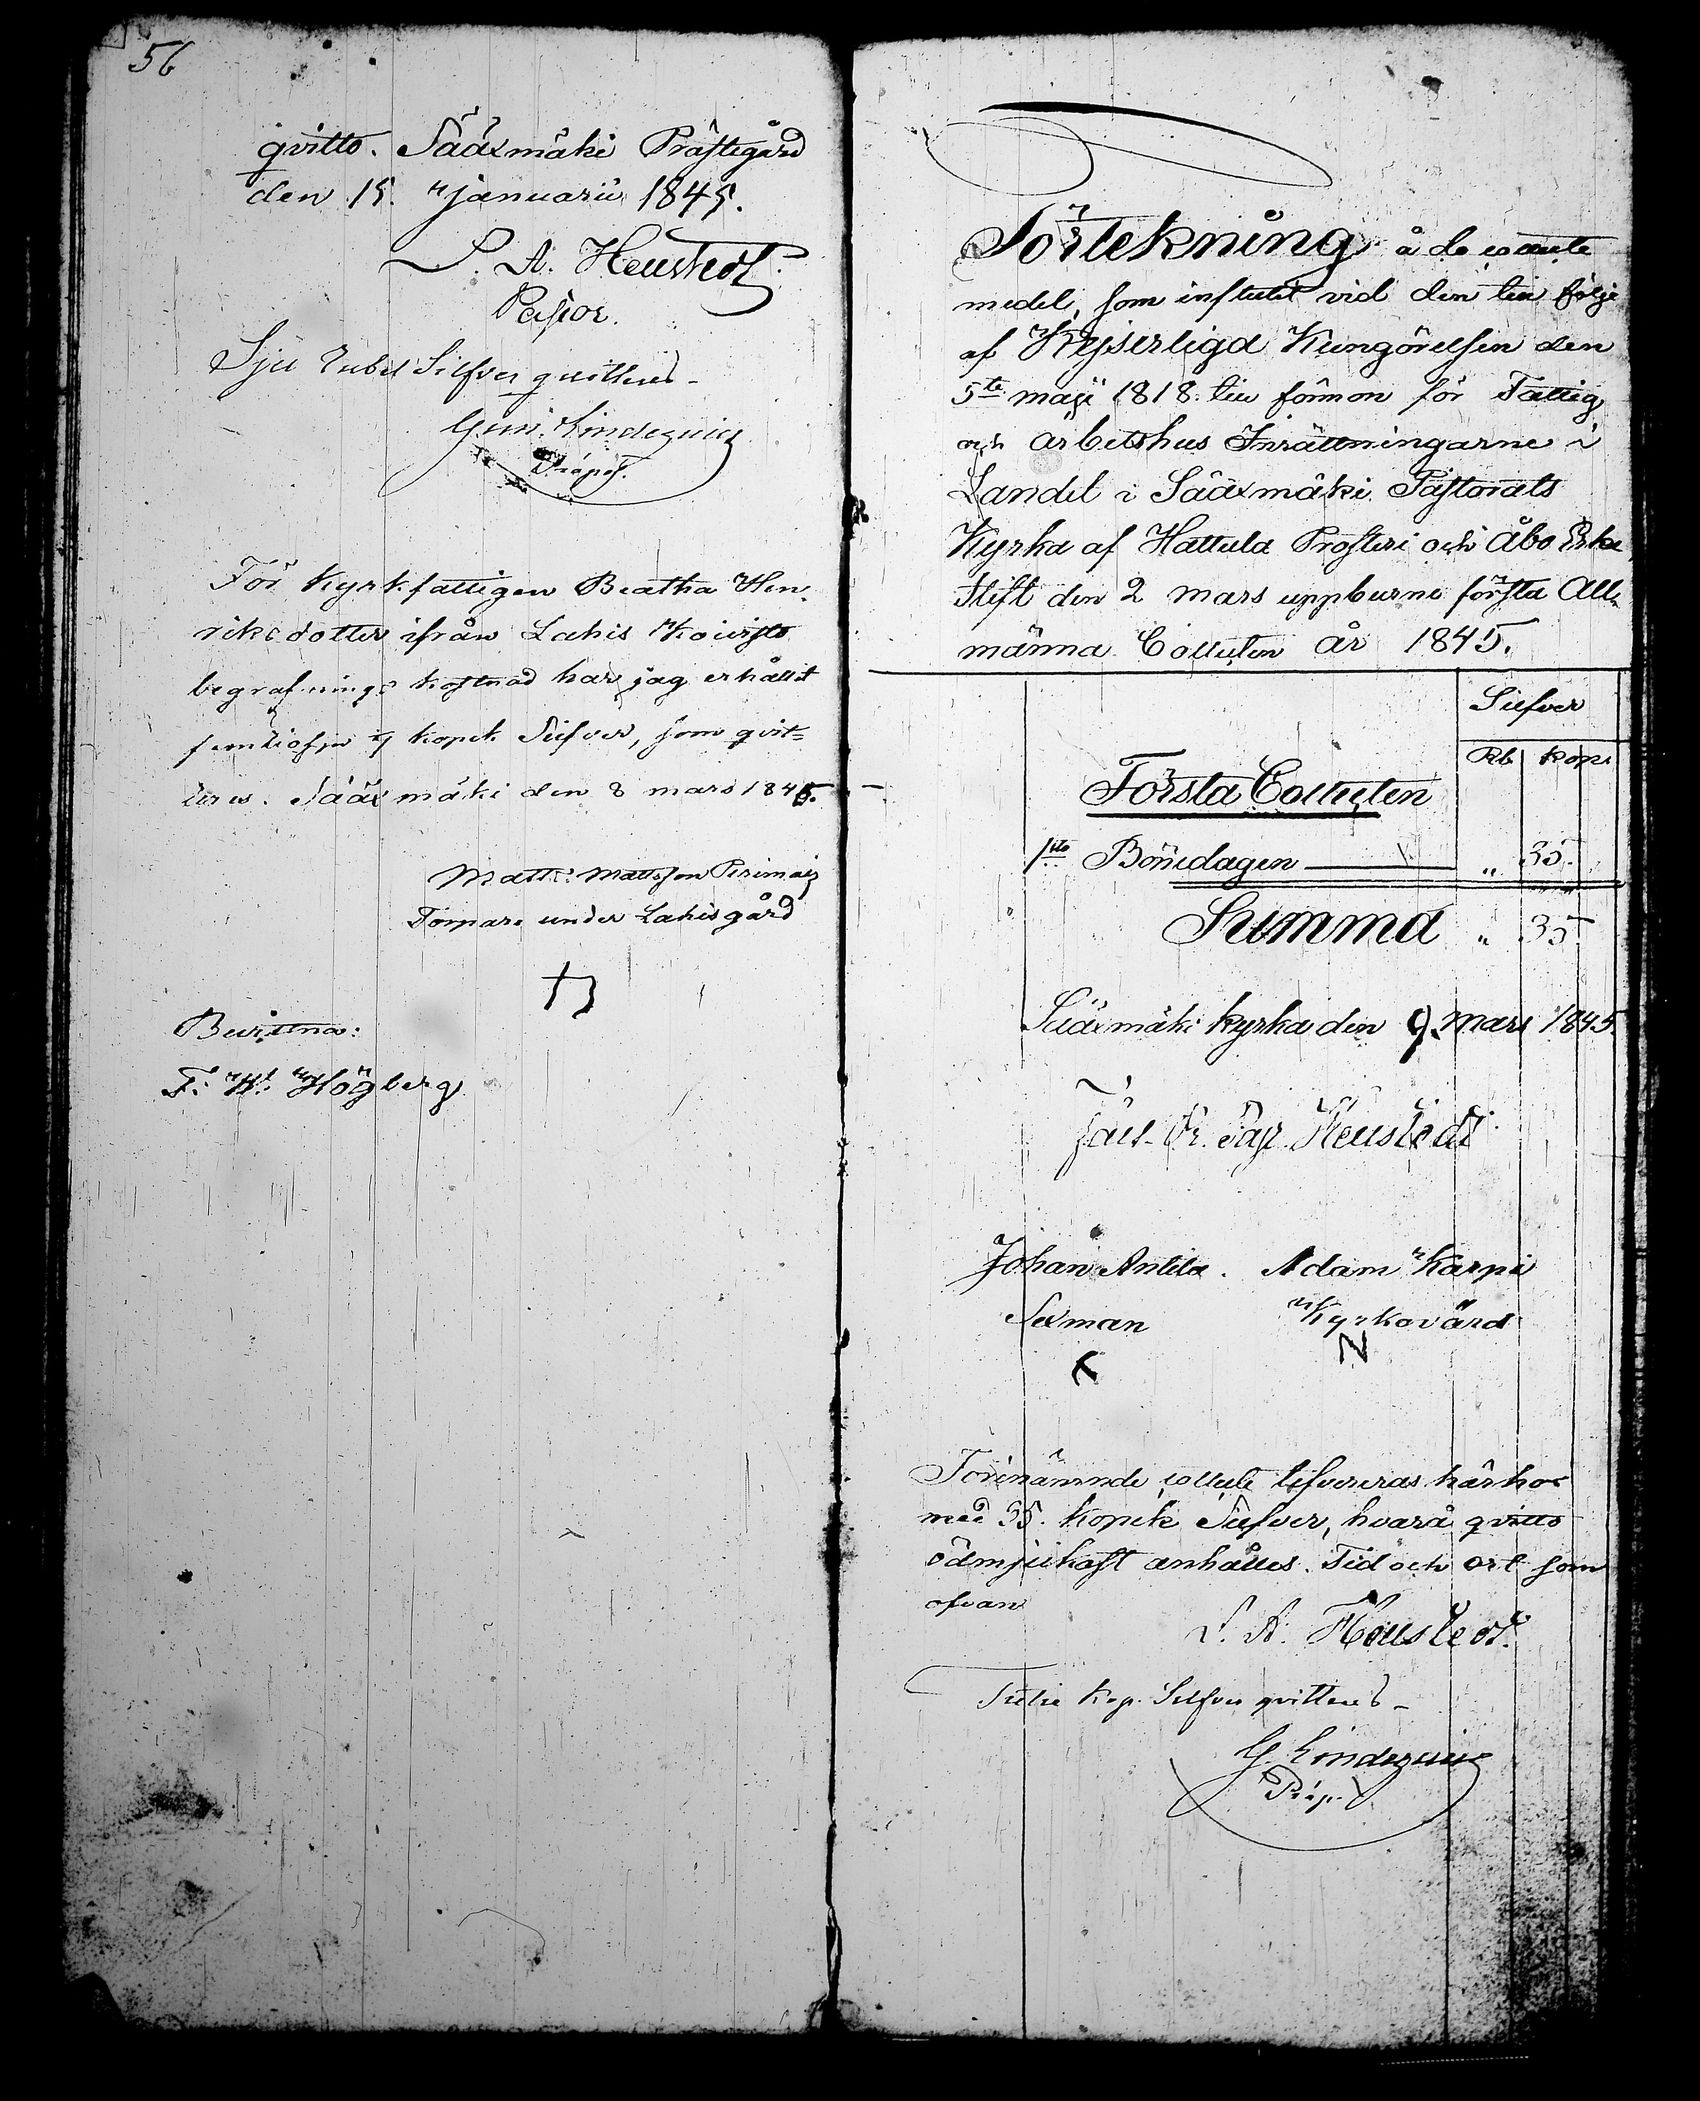 56
qvitto. Sääxmäki Prästegård
den 15. Januarii 1845.
S. A. Heustedt.
Pastor.
Sju Rubel Silfver qvitteras –
Gust. Lindeqvist
Pråpst.
För Kyrkfattigen Beatha Hen-
riksdotter ifrån Lahis Koivisto
begrafnings kostnad har jag erhållit
kopek Silfver, som qvit-
teres. Sääxmäki den 8 mars 1845.
Matts Mattsson
Torpare under Lahis gård
Bevittna:
F: W: Högberg
Förtekning å de collecte
medel, som influtit vid den till följe
af Kejserliga Kungörelsen den
5te maji 1818. till förmon för Fattig
och Arbetshus Inrättningarne i
Landet i Sääxmäki Pastorats
Kyrka af Hattula Prosteri och Åbo Erke
Stift den 2 mars uppburne första All-
männa Collecten år 1845.
Silfver
Rb kop.
Första Collecten
1sta Bönedagen — " 35.
Summa " 35.
Sääxmäki kyrka den 9. Mars 1845.
Heustedt
Johan Antila. Adam Karpi
Sexman Kyrkovärd
N
Förenämnde collecte lefvereras härhos
med 35. kopek Silfver, hvarå qvitto
ödmjukast anhålles. Tid och ort som
ofvan
S. A. Heustedt.
kop. Silfver qvitteras –
G. Lindeqvist
Pråp.